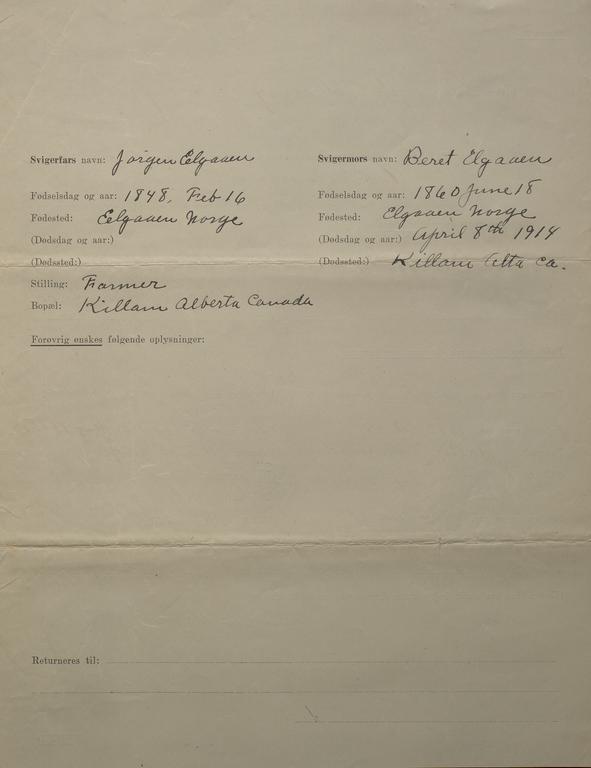 Svigerfars navn: Jorgen Eelgaaen
Svigermors navn: Beret Elgaaen
Fødselsdag og aar: 1848, Feb 16
Fødselsdag og aar: 1860 June 18
Fødested: Eelgaaen Norge
Fødested: Elgaaen Norge
(Dødsdag og aar:)
(Dødsdag og aar:) April 8th 1914
(Dødssted:)
(Dødssted:) Killam Alta Ca.
Stilling: Farmer
Bopæl: Killam Alberta Canada
Forøvrig ønskes følgende oplysninger:
Returneres til: